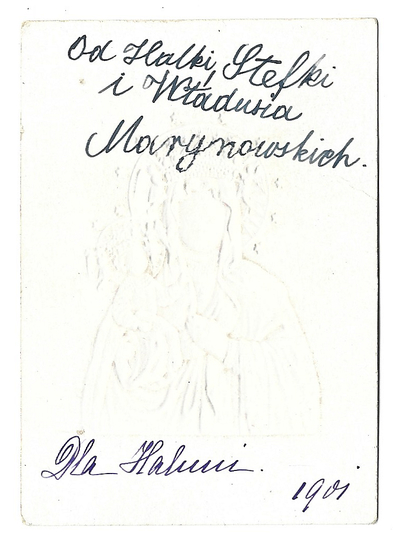 Od Halki Stefki
i Władusia
Marynowskich.
Dla Haluni.
1901